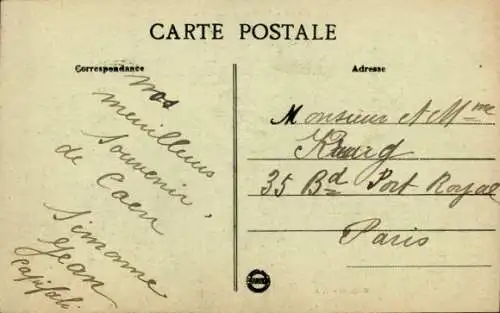 CARTE POSTALE
Correspondance
Adresse
nos
meilleurs
souvenir
de Caen
Simonne
Jean
Monsieur et Mme
35 Bd Port Royal
Paris